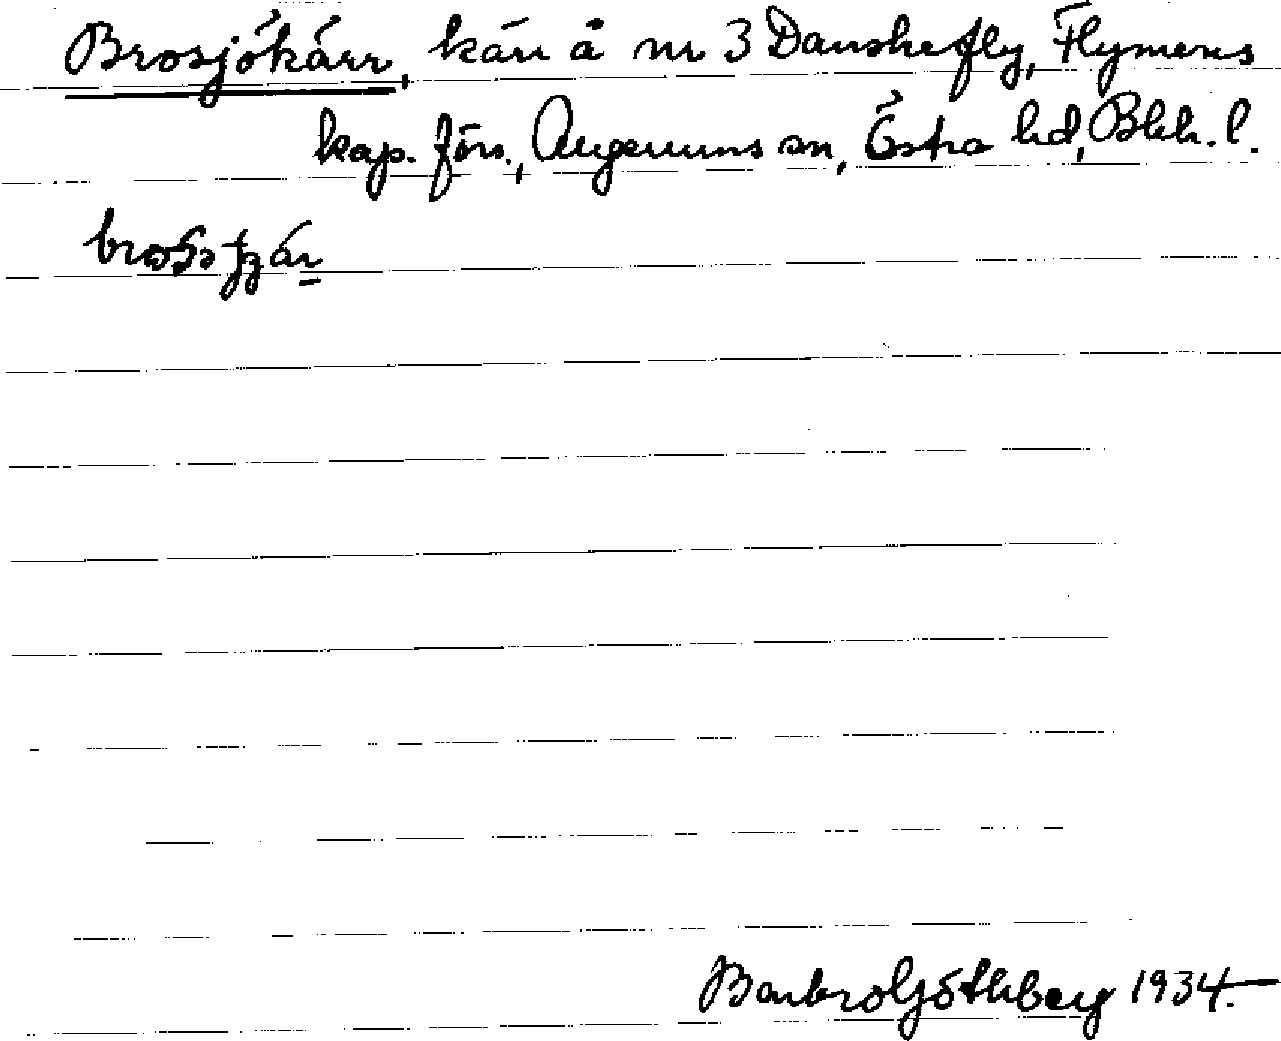 Brosjökärr, kärr å nr 3 Danskefly, Flymens
kap. förs., Augerums sn, Östra hd, Blek. l.
Barbro Göthberg 1934.